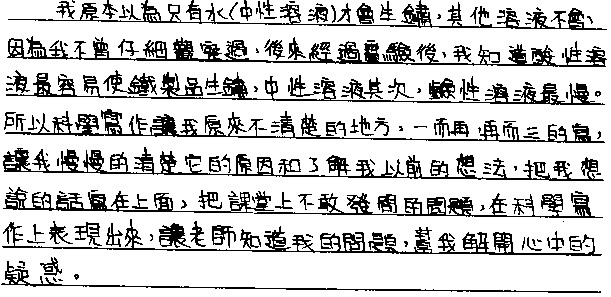 我原本以為只有水(中性溶液)才會生鏽，其他溶液不會，
因為我不曾仔細觀察過，後來經過實驗後，我知道酸性溶
液最容易使鐵製品生鏽，中性溶液其次，鹼性溶液最慢。
所以科學寫作讓我原來不清楚的地方，一而再，再而三的寫，
讓我慢慢的清楚它的原因和了解我以前的想法，把我想
說的話寫在上面，把課堂上不敢發問的問題，在科學寫
作上表現出來，讓老師知道我的問題，幫我解開心中的
疑惑。